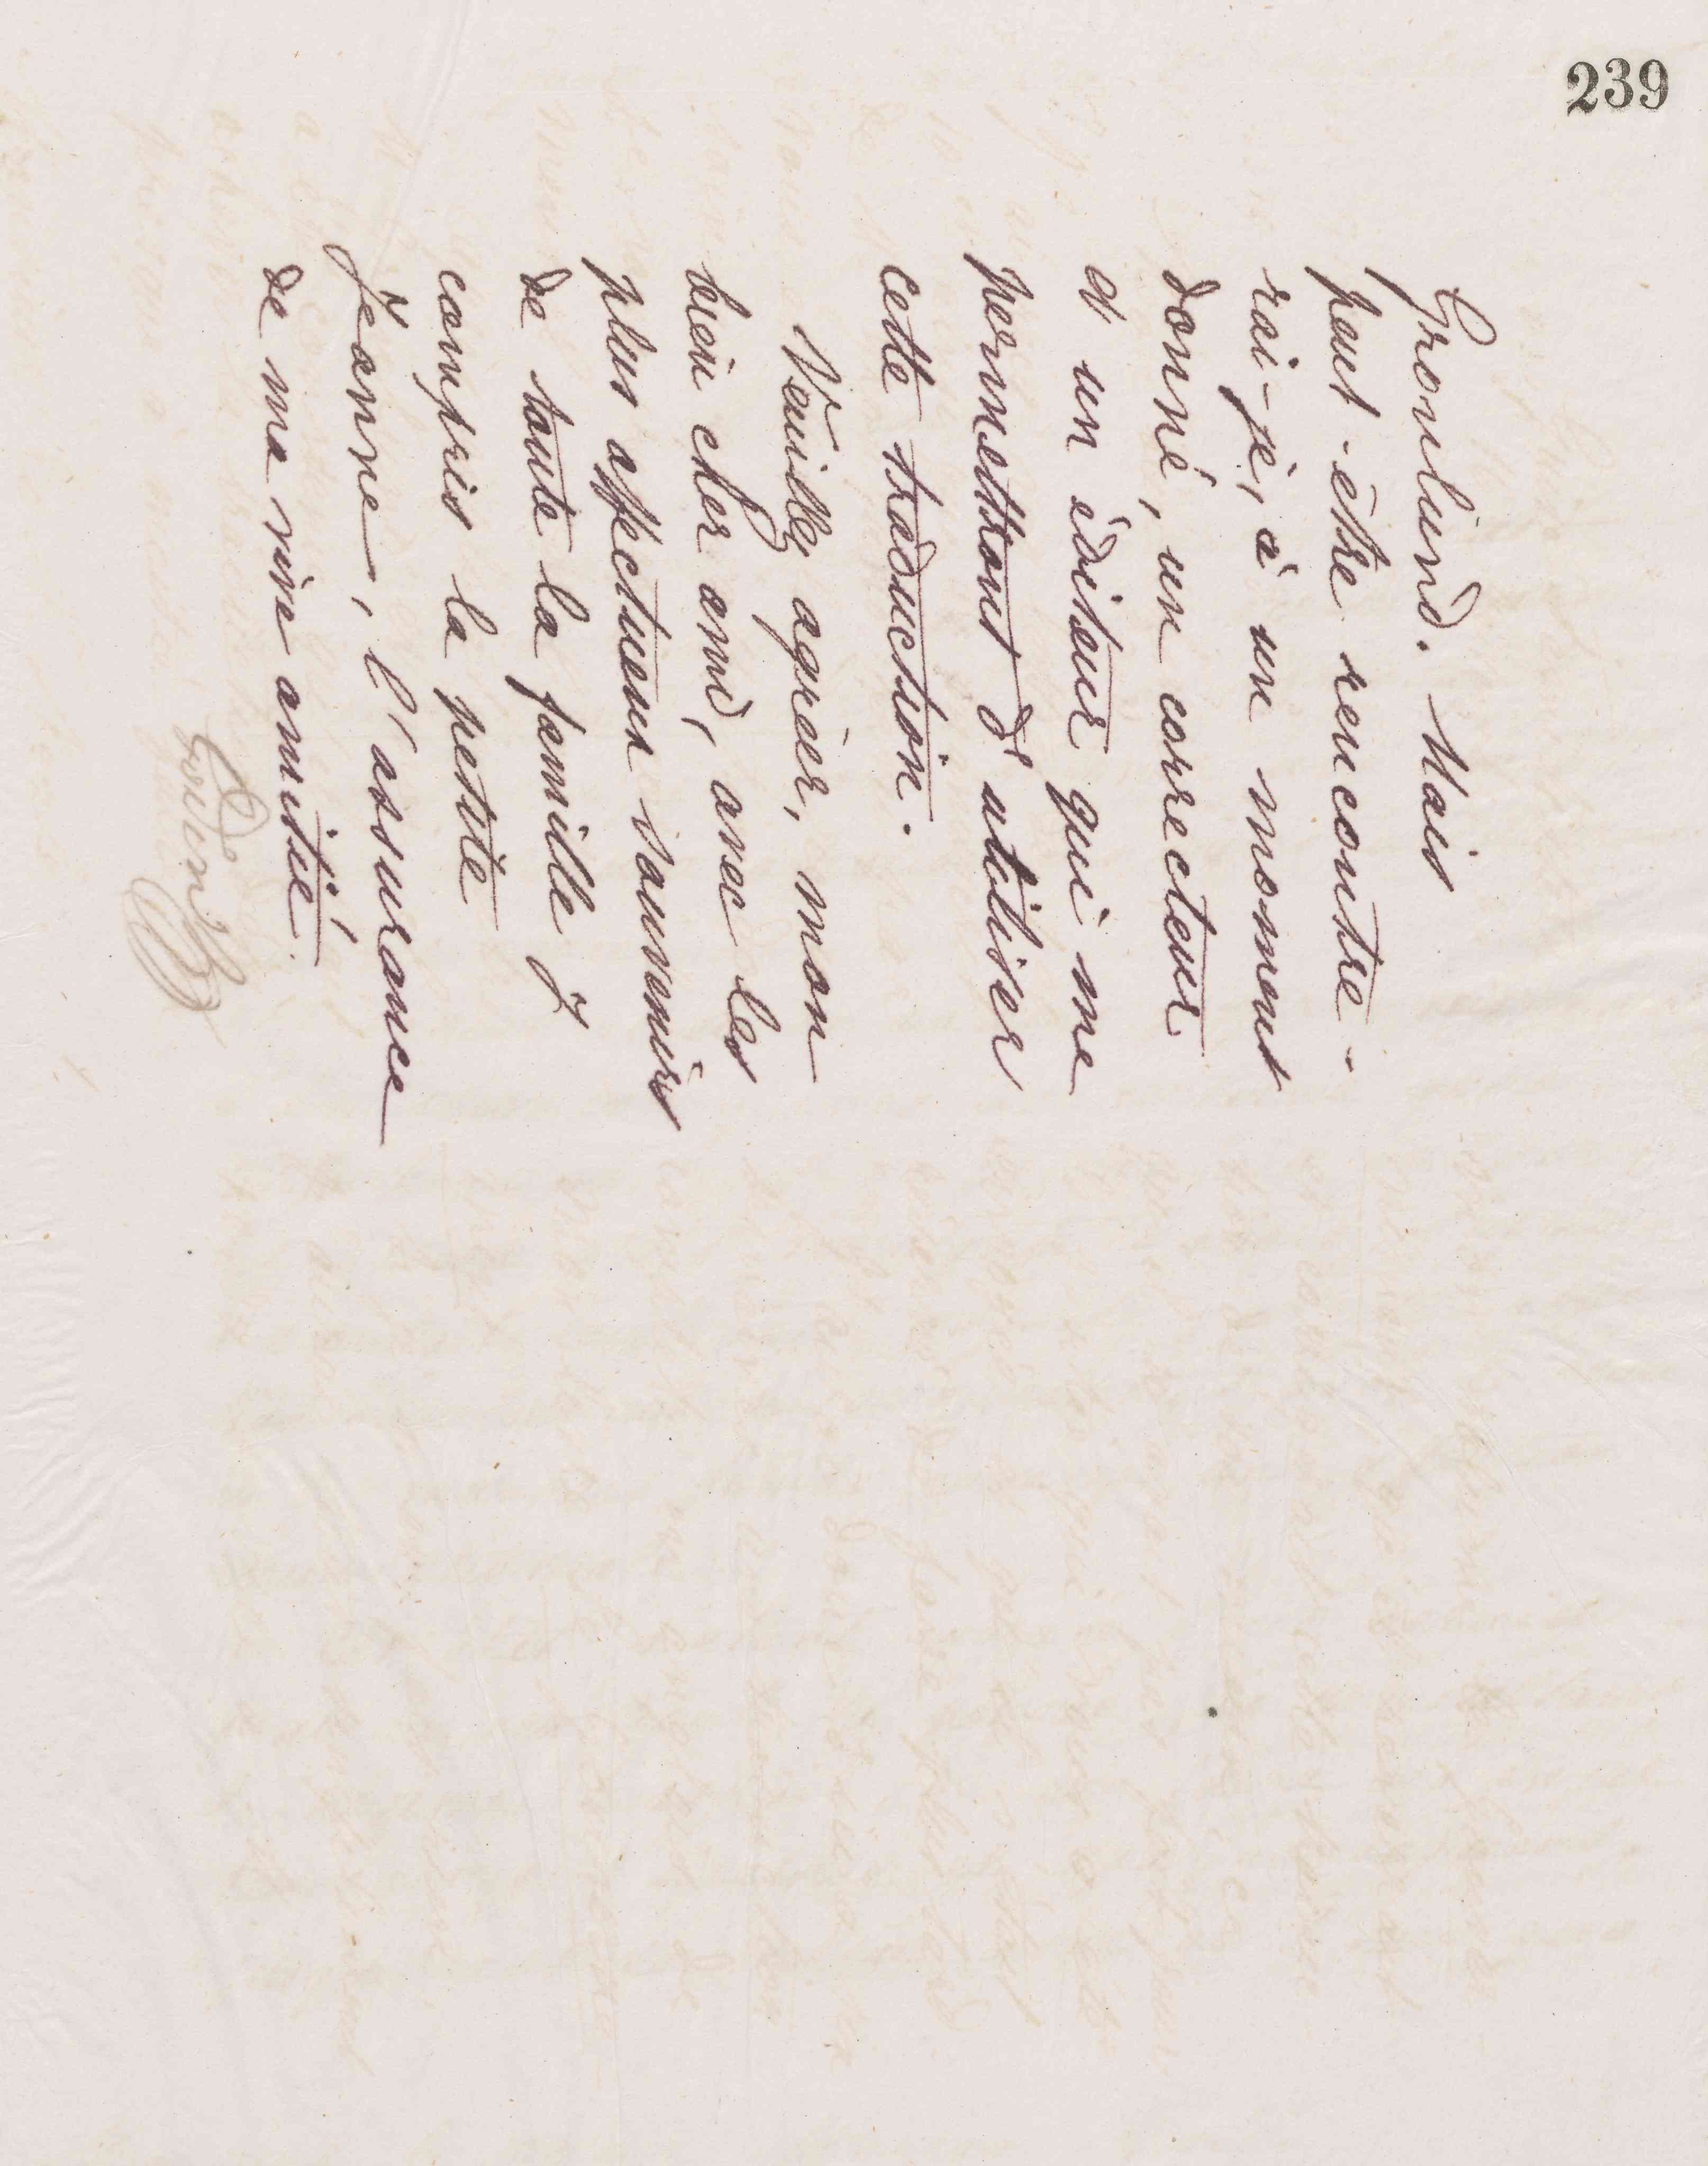 239
Gronlund. Mais
peut-être rencontre-
rai-je, à un moment
donné, un correcteur
et un éditeur qui me
permettront d'utiliser
cette traduction.
Veuillez agréer, mon
bien cher ami, avec les
plus affectueux souvenirs
de toute la famille y
compris la petite
Jeanne, l'assurance
de ma vive amitié.
Godin